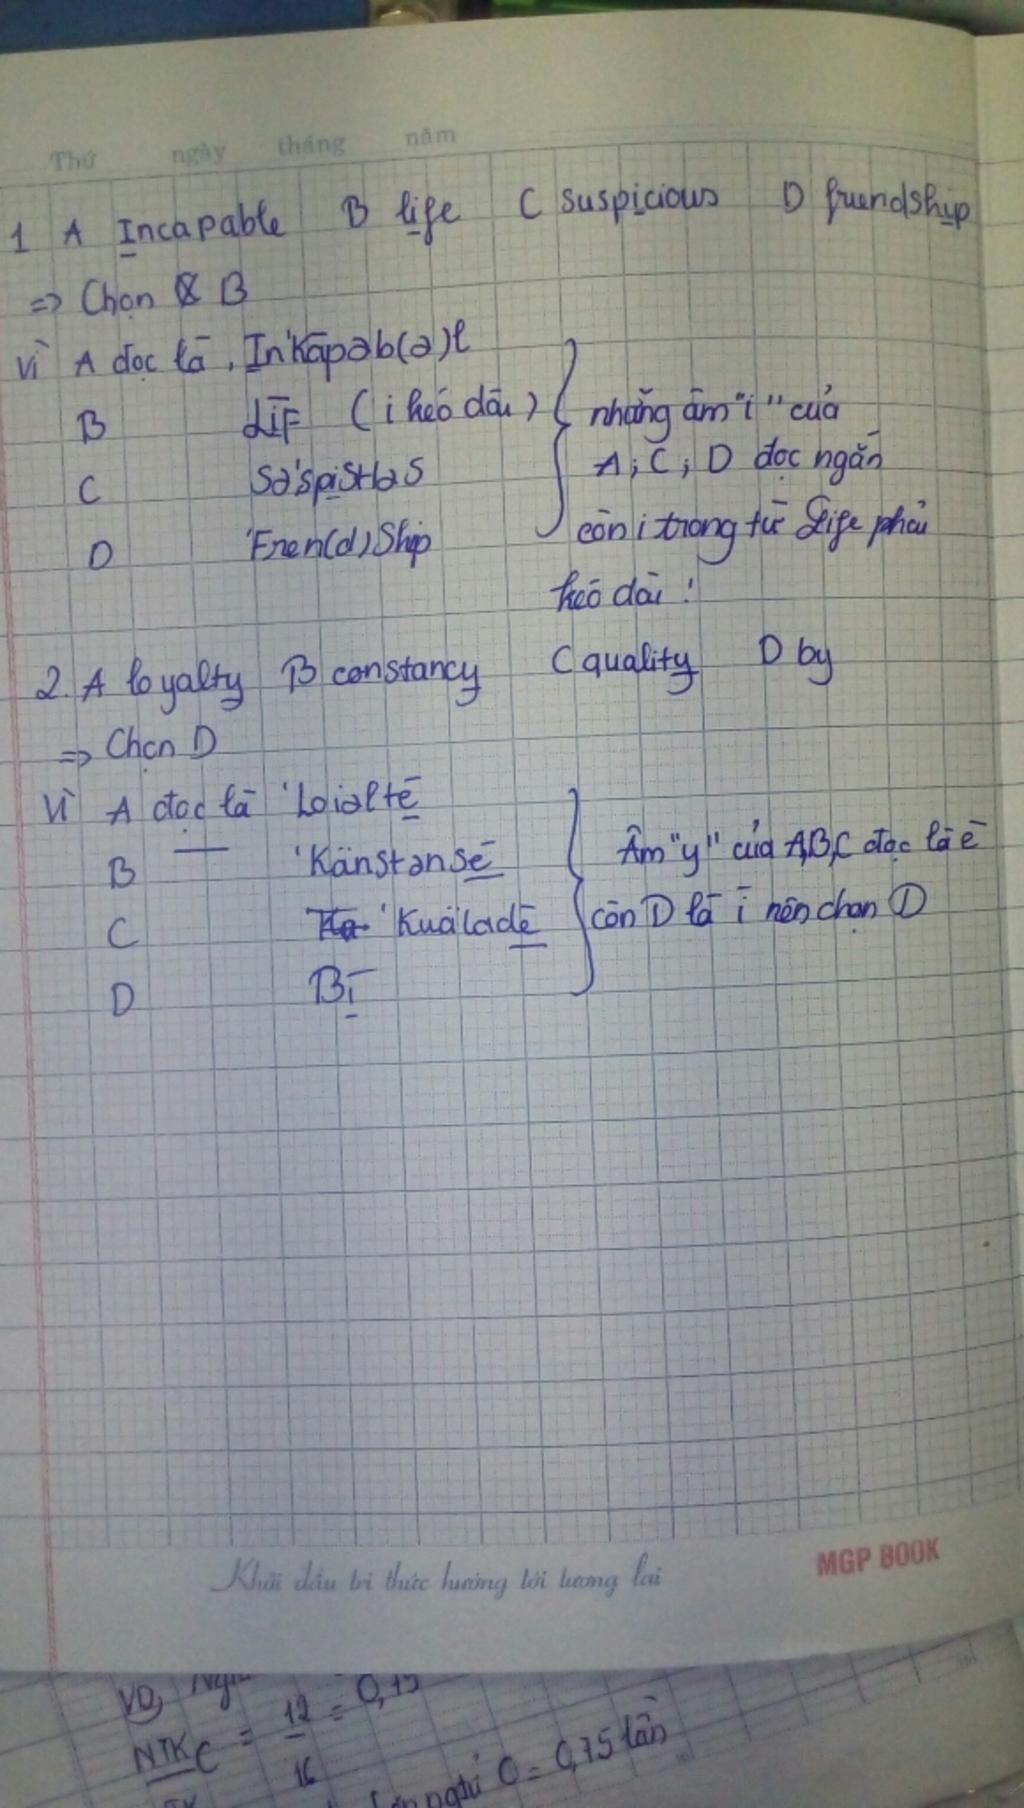 Thứ ngày tháng năm
1 A Incapable B life C suspicious D friendship
=> Chọn B
Vì A đọc là, In'Kāpəb(ə)l
B LīF (i kéo dài)
C Sə'spiSHəS
D 'Fren(d)Ship
những âm "i" của
A, C, D đọc ngắn
còn i trong từ Life phải
kéo dài!
2. A loyalty B constancy C quality D by
=> Chọn D
Vì A đọc là 'Loiəltē
B 'Känstənsē
C 'Kuälədē
D Bī
Âm "y" của A,B,C đọc là ē
còn D là ī nên chọn D
Khởi đầu tri thức hướng tới tương lai
MGP BOOK
VD,
NTK C = 12/16 = 0,75
C = 0,75 lần